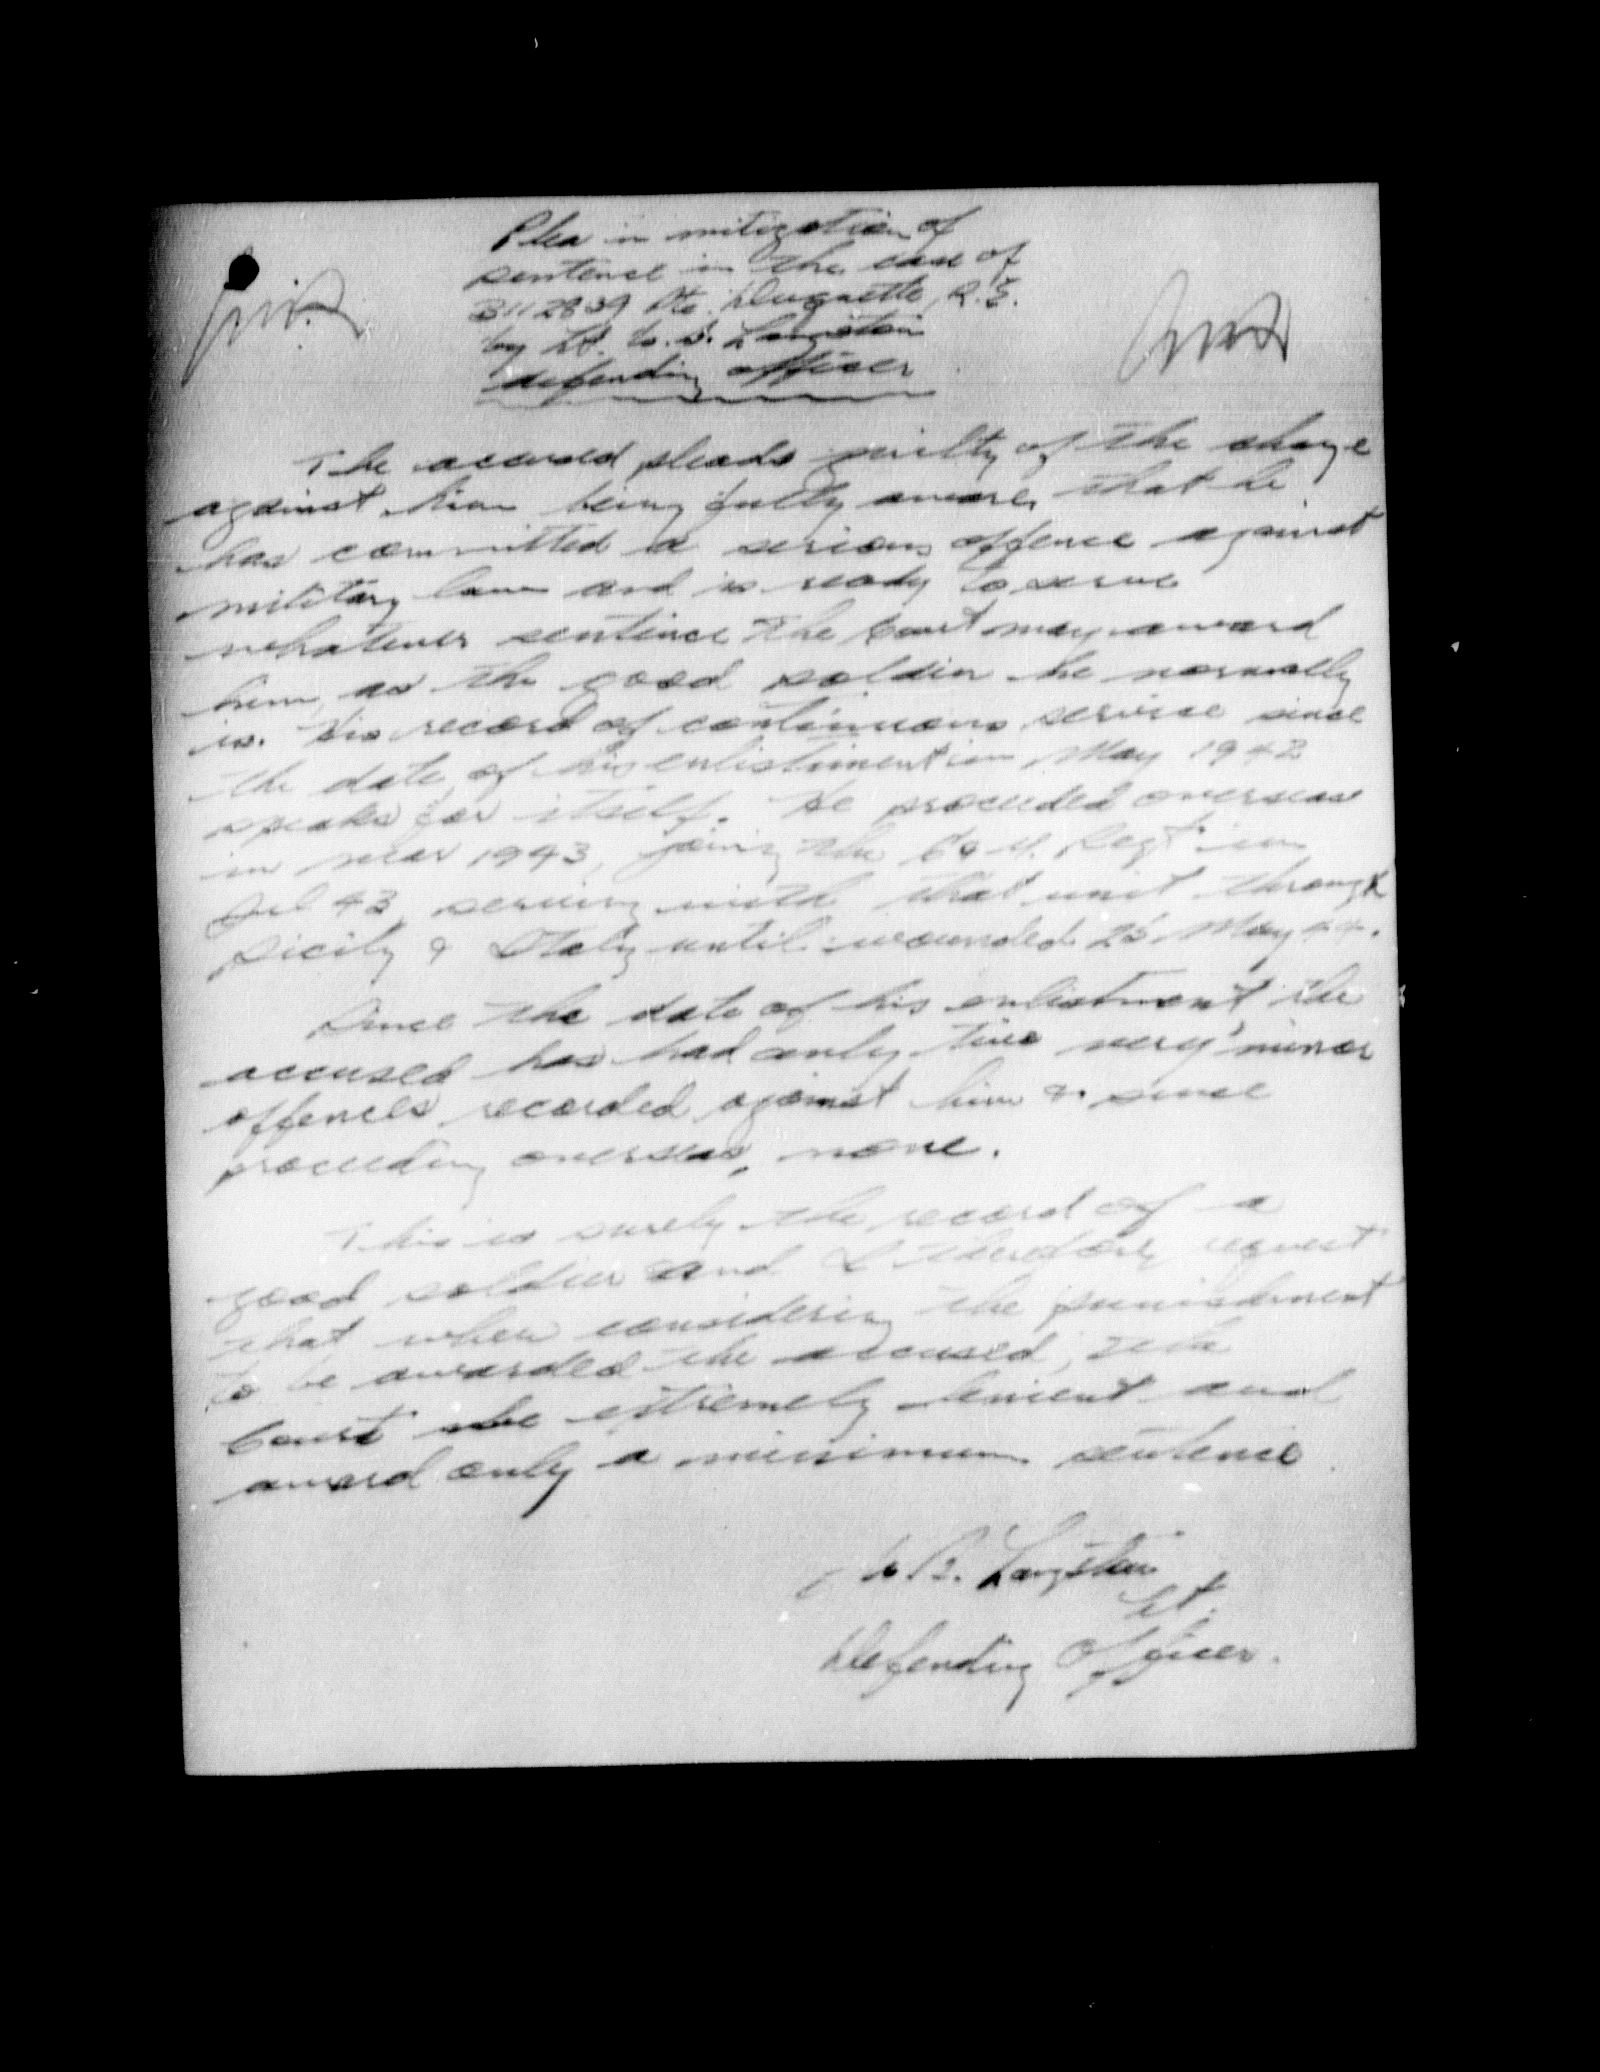 Plea in mitigation of
sentence in the case of
B112839 Pte. Duquette, R.E.
by Lt. Langstan
defending officer
The accused pleads guilty of the charge
against him being fully aware that he
has committed a serious offence against
military law and is ready to serve
whatever sentence the Court may award
him as the good soldier he normally
is. His record of continuous service since
the date of his enlistment in May 1942
speaks for itself. He proceeded overseas
in Mar 1943, joining the Regt in
Jul 43, serving with that unit through
Sicily & Italy until wounded 25 May 44.
Since the date of his enlistment the
accused has had only two very minor
offences recorded against him & since
proceeding overseas, none.
This is surely the record of a
good soldier and I therefore request
that when considering the punishment
to be awarded the accused, the
Court be extremely lenient and
award only a minimum sentence
Lt.
Defending Officer.